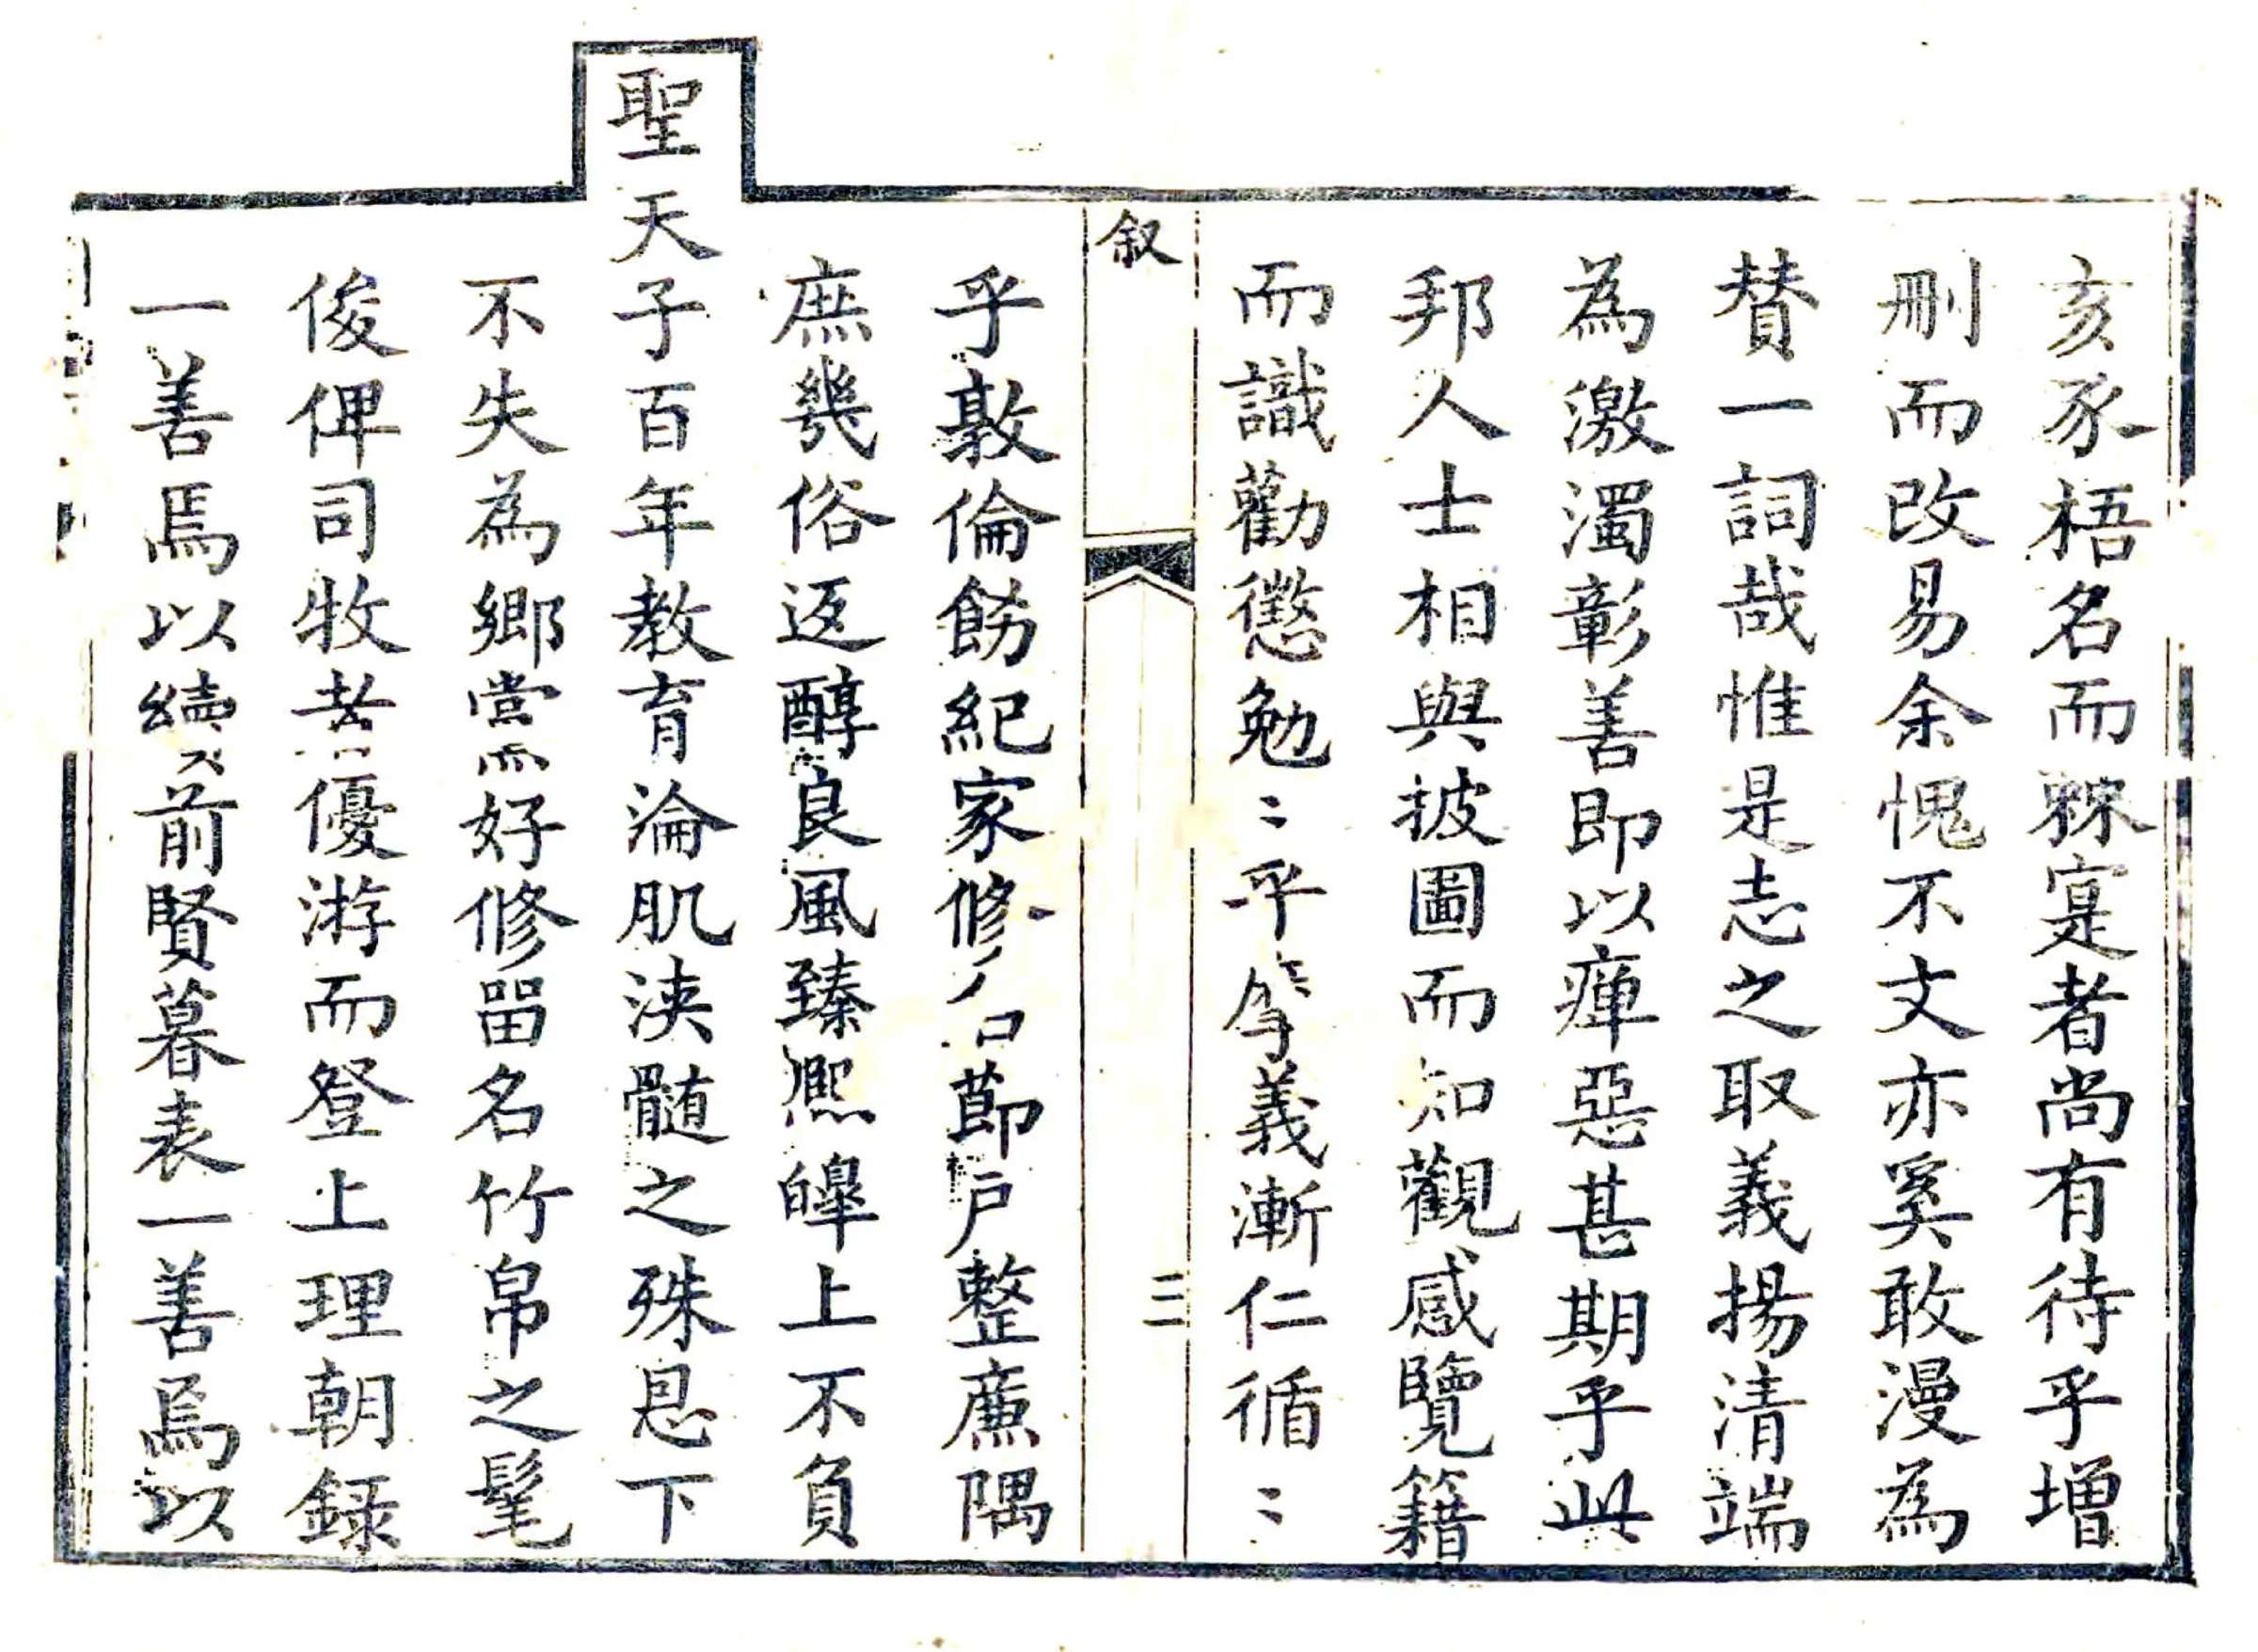 亥豕梧名而棘寔者尚有待乎增
刪而改易余愧不文亦奚敢漫為
賛一詞哉惟是志之取義揚清端
為激濁彰善即以癉惡甚期乎此
邦人士相與披圖而知觀感覽籍
而識勸懲勉〻乎摩義漸仁循〻
叙
三
乎敦倫飭紀家修名莭戶整廉隅
庶幾俗返醇良風臻熈皥上不負
聖天子百年教育淪肌浹髓之殊恩下
不失為鄉黨好修畱名竹帛之髦
俊俾司牧者優游而登上理朝録
一善焉以續前賢暮表一善焉以